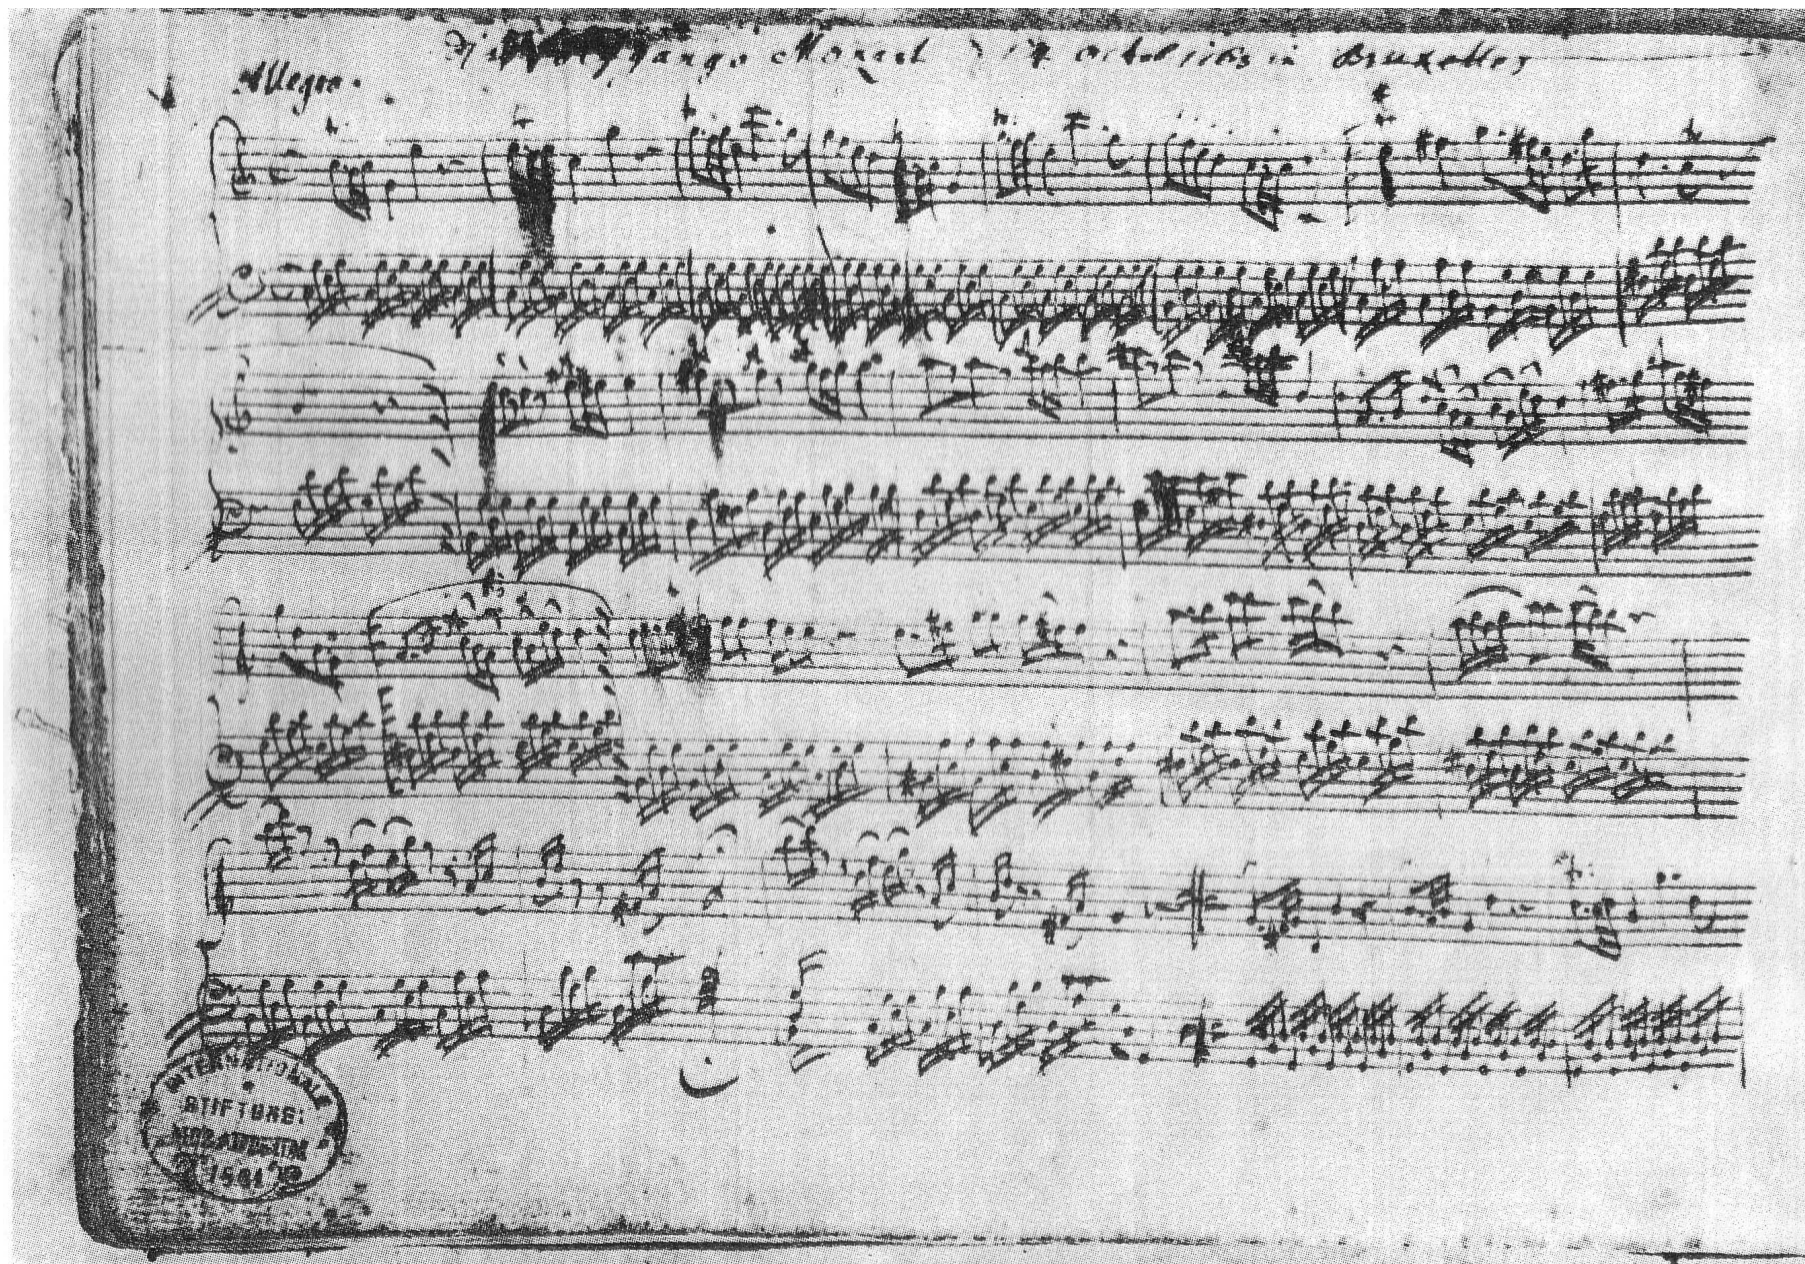 di Wolfgango Mozart d. 14 octob 1763 in Bruxelles
Allegro.
INTERNATIONALE
STIFTUNG:
MOZARTEUM